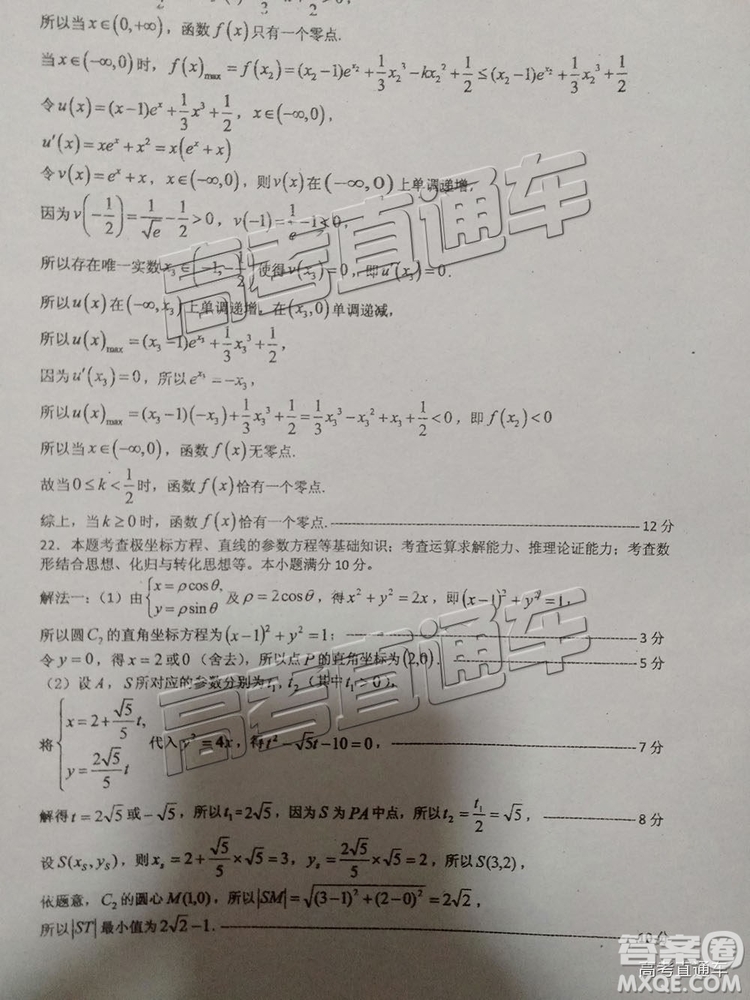 所以当 x∈(0,+∞)，函数 f(x) 只有一个零点.
当 x∈(-∞,0) 时，f(x)max = f(x₂) = (x₂-1)e^{x₂} + 1/3 x₂³ - kx₂² + 1/2 ≤ (x₂-1)e^{x₂} + 1/3 x₂³ + 1/2
令 u(x) = (x-1)e^x + 1/3 x³ + 1/2，x∈(-∞,0)，
u'(x) = xe^x + x² = x(e^x + x)
令 v(x) = e^x + x，x∈(-∞,0)，则 v(x) 在 (-∞,0) 上单调递增，
因为 v(-1/2) = 1/√e - 1/2 > 0，v(-1) = 1/e - 1 < 0，
所以存在唯一实数 x₃∈(-1,-1/2)，使得 v(x₃)=0，即 u'(x₃)=0.
所以 u(x) 在 (-∞,x₃) 上单调递增，在 (x₃,0) 单调递减，
所以 u(x)max = (x₃-1)e^{x₃} + 1/3 x₃³ + 1/2，
因为 u'(x₃)=0，所以 e^{x₃} = -x₃，
所以 u(x)max = (x₃-1)(-x₃) + 1/3 x₃³ + 1/2 = 1/3 x₃³ - x₃² + x₃ + 1/2 < 0，即 f(x₂)<0
所以当 x∈(-∞,0)，函数 f(x) 无零点.
故当 0≤k<1/2 时，函数 f(x) 恰有一个零点.
综上，当 k≥0 时，函数 f(x) 恰有一个零点. 12 分
22．本题考查极坐标方程、直线的参数方程等基础知识；考查运算求解能力、推理论证能力；考查数
形结合思想、化归与转化思想等。本小题满分 10 分。
解法一：（1）由 {x=ρcosθ, y=ρsinθ 及 ρ=2cosθ，得 x²+y²=2x，即 (x-1)²+y²=1，
所以圆 C₂ 的直角坐标方程为 (x-1)²+y²=1； 3 分
令 y=0，得 x=2 或 0（舍去），所以点 P 的直角坐标为 (2,0). 5 分
（2）设 A，S 所对应的参数分别为 t₁,t₂（其中 t₁>0），
将 {x=2+√5/5 t, y=2√5/5 t 代入 y²=4x，得 t²-√5t-10=0， 7 分
解得 t=2√5 或 -√5，所以 t₁=2√5，因为 S 为 PA 中点，所以 t₂=t₁/2=√5， 8 分
设 S(x_S,y_S)，则 x_S=2+√5/5×√5=3，y_S=2√5/5×√5=2，所以 S(3,2)，
依题意，C₂ 的圆心 M(1,0)，所以 |SM|=√((3-1)²+(2-0)²)=2√2，
所以 |ST| 最小值为 2√2-1. 10 分
高考直通车
高考直通车
答案圈
高考直通车
MXQE.COM